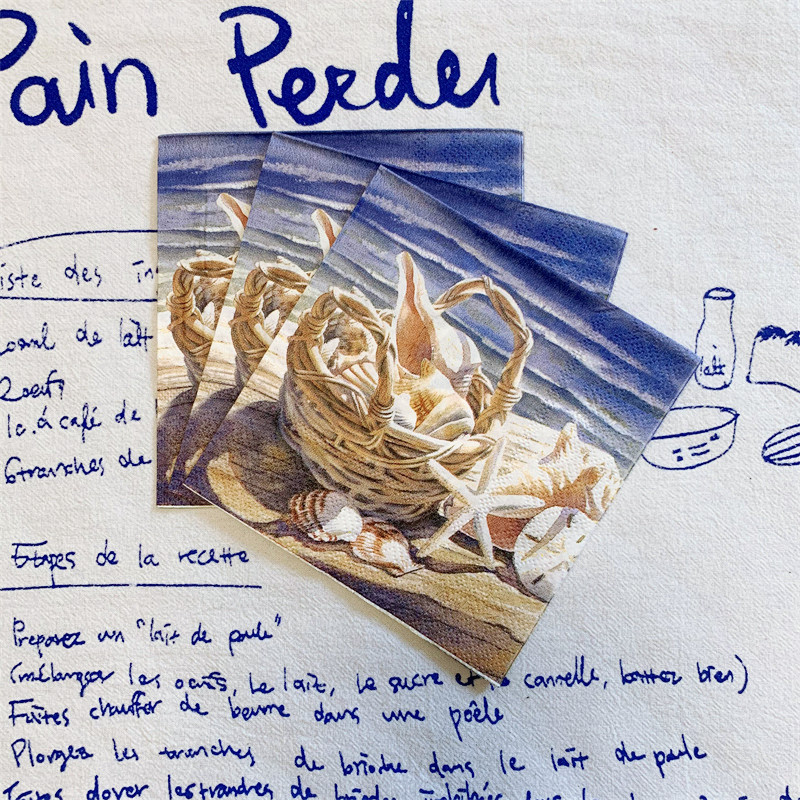 Pain Perdu
iste des in
de lait
2 oeufs
1c.à café de
6 tranches de
lait
Etapes de la recette
Preparez un "lait de poule"
(mélangez les oeufs, le lait, le sucre et la cannelle, battez bien)
Faites chauffer de beurre dans une poêle
Plongez les tranches de brioche dans le lait de poule
dorer les tranches de brioche imbibées